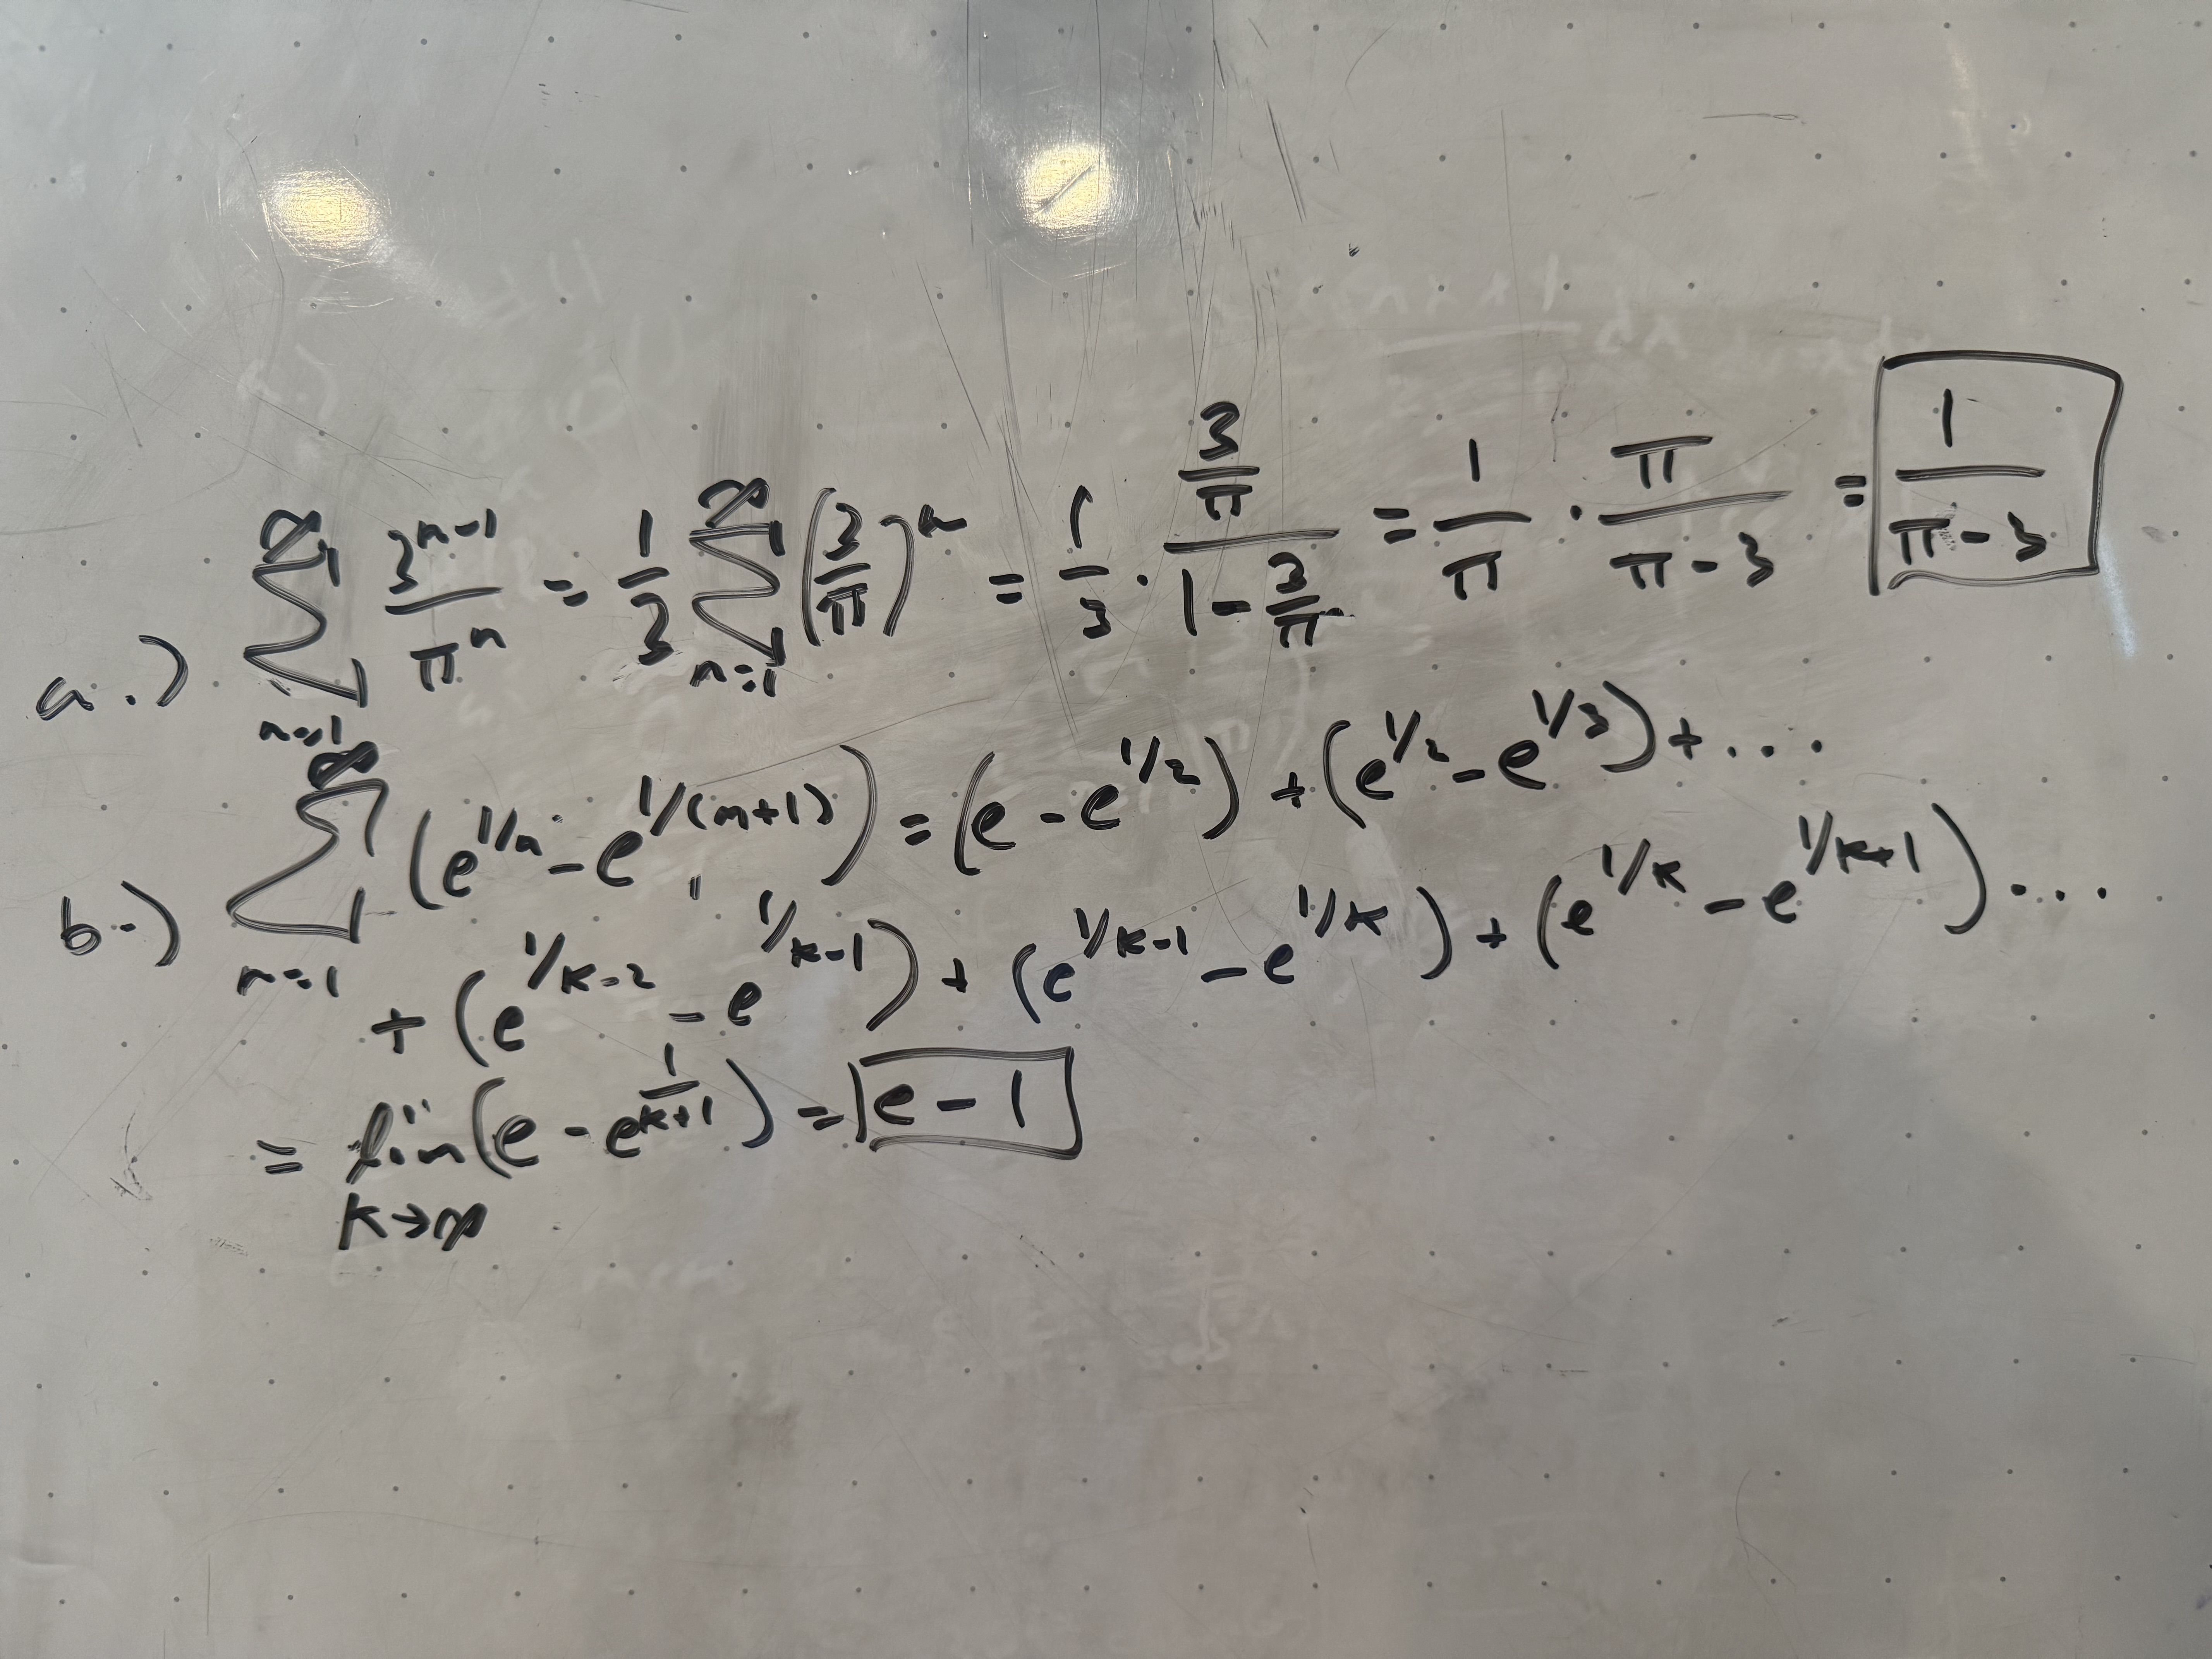 a.) ∑_{n=1}^{∞} 3^{n-1}/π^n = 1/3 ∑_{n=1}^{∞} (3/π)^n = 1/3 · (3/π)/(1 - 3/π) = 1/π · π/(π - 3) = 1/(π - 3)
b.) ∑_{n=1}^{∞} (e^{1/n} - e^{1/(n+1)}) = (e - e^{1/2}) + (e^{1/2} - e^{1/3}) + ...
+ (e^{1/k-2} - e^{1/k-1}) + (e^{1/k-1} - e^{1/k}) + (e^{1/k} - e^{1/k+1}) ...
= lim_{k→∞} (e - e^{1/(k+1)}) = e - 1